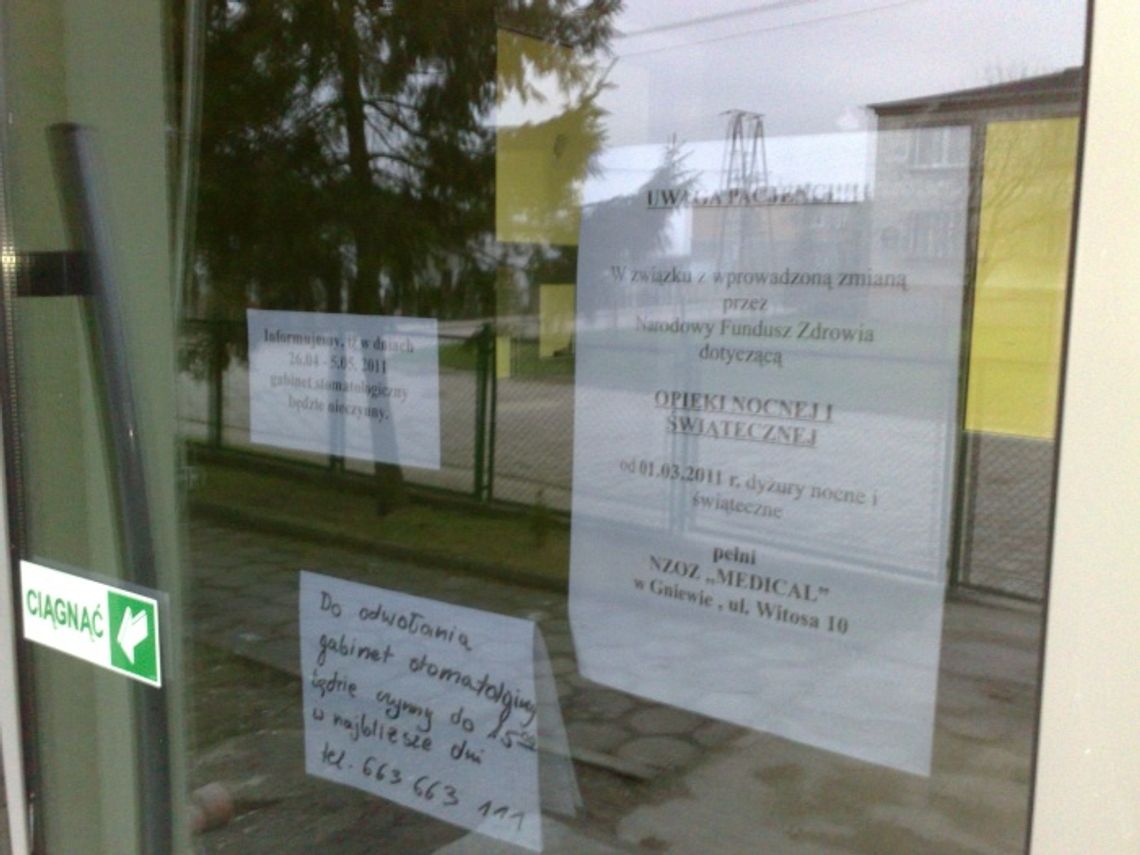 UWAGA PACJENCI
W związku z wprowadzoną zmianą
przez
Narodowy Fundusz Zdrowia
dotyczącą
OPIEKI NOCNEJ I
ŚWIĄTECZNEJ
od 01.03.2011 r. dyżury nocne i
świąteczne
pełni
NZOZ „MEDICAL”
w Gniewie , ul. Witosa 10
Informujemy, iż w dniach
26.04 - 5.05. 2011
gabinet stomatologiczny
będzie nieczynny.
CIĄGNĄĆ
Do odwołania
gabinet stomatolgiczny
będzie czynny do 15 00
w najbliesze dni
tel. 663 663 111